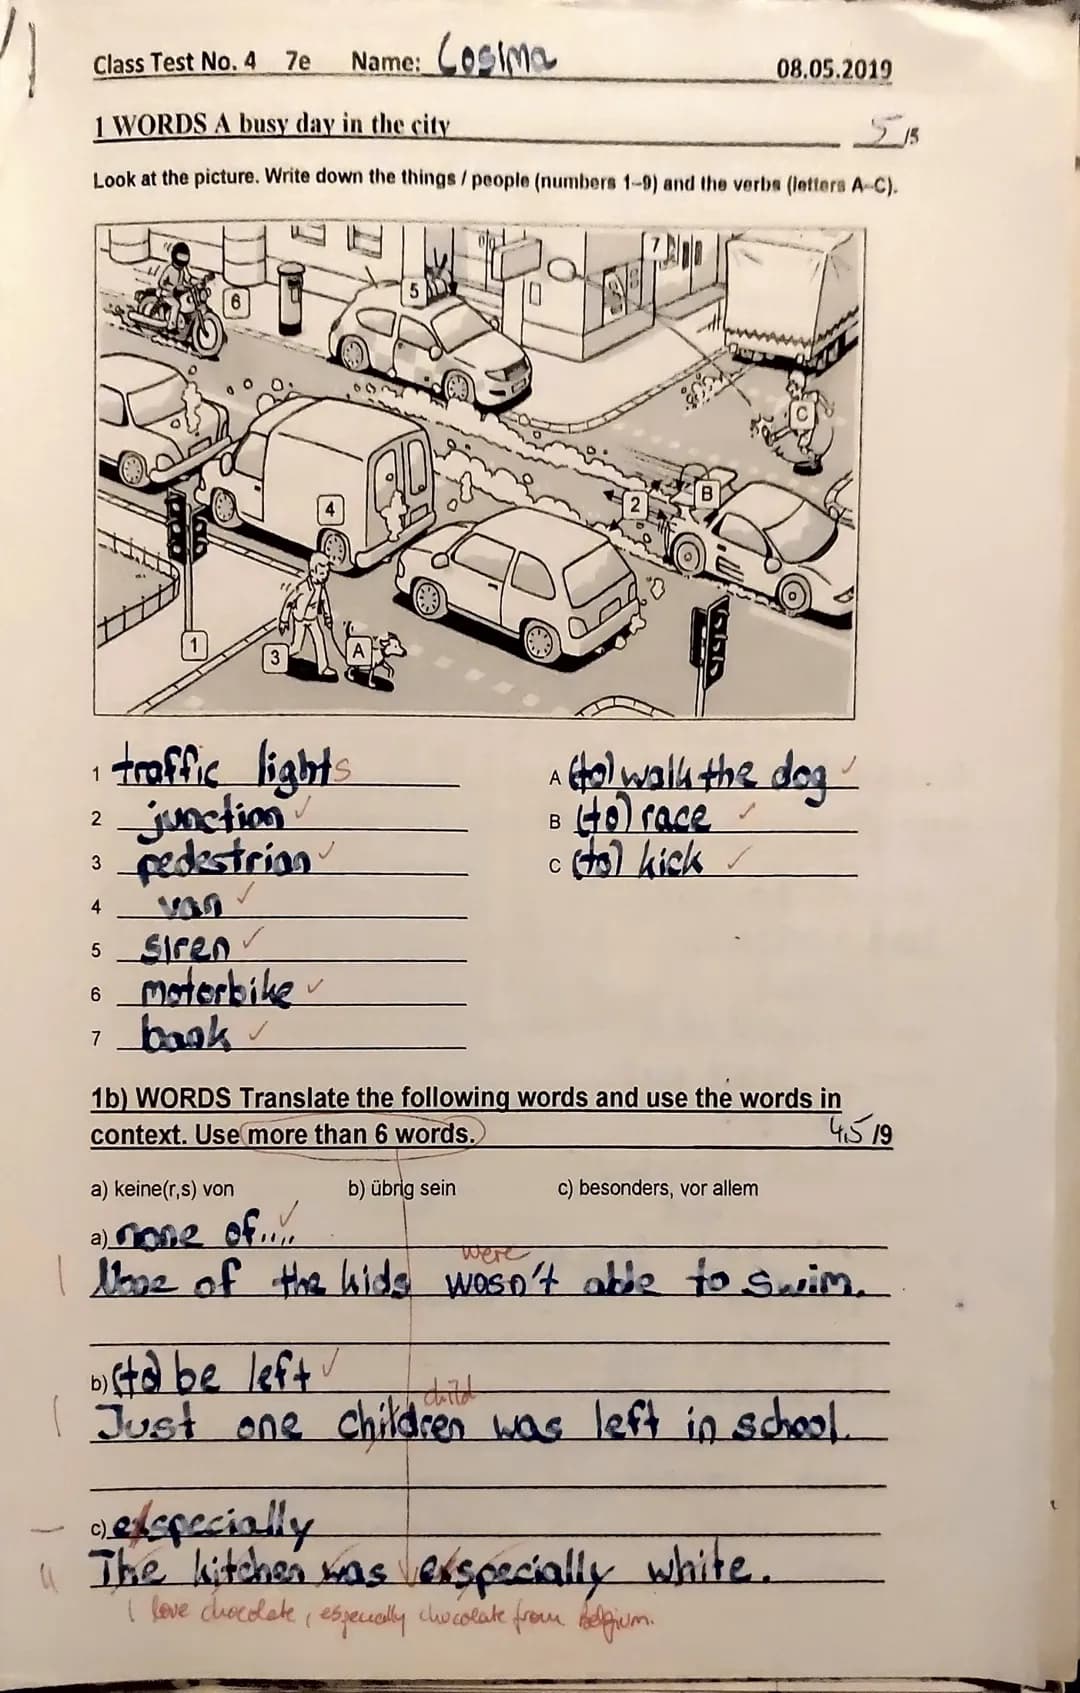 Class Test No. 4 7e Name: Cosima 08.05.2019
1 WORDS A busy day in the city 5 /5
Look at the picture. Write down the things / people (numbers 1-9) and the verbs (letters A-C).
7
5
6
C
B
2
4
1
3
A
1 traffic lights A (to) walk the dog ✓
2 junction ✓ B (to) race ✓
3 pedestrian ✓ C (to) kick ✓
4 van ✓
5 siren ✓
6 motorbike ✓
7 bank ✓
1b) WORDS Translate the following words and use the words in
context. Use more than 6 words. 4,5 /9
a) keine(r,s) von b) übrig sein c) besonders, vor allem
a) none of..... ✓
were
None of the kids wasn't able to swim.
b) (to) be left ✓
child
Just one children was left in school.
c) exspecially
The kitchen was exspecially white.
I love chocolate, especially chocolate from Belgium.